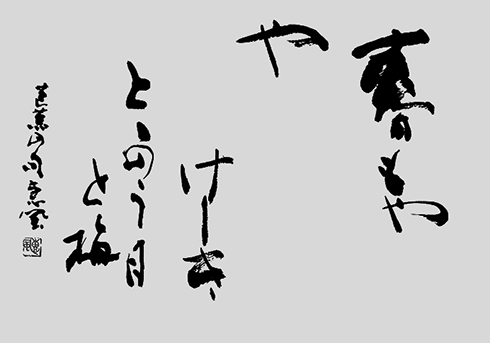 春もや
や
けしき
とゝのう月
と梅
芭蕉の句